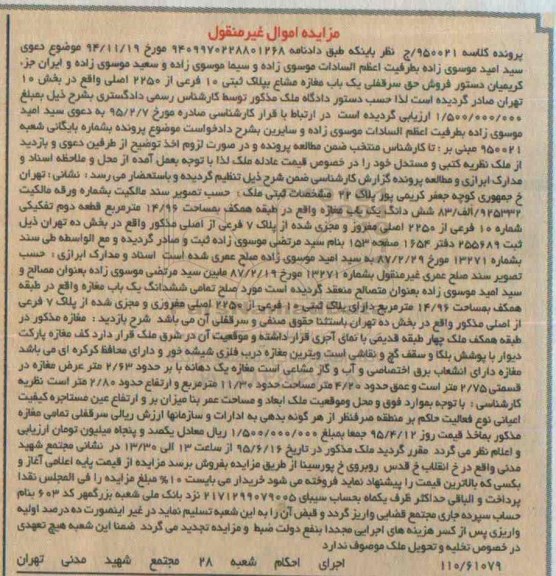 مزایده اموال غیرمنقول
پرونده کلاسه 950021/ج نظر باینکه طبق دادنامه 9409970228801268 مورخ 94/11/19 موضوع دعوی
سید امید موسوی زاده بطرفیت اعظم السادات موسوی زاده و سیما موسوی زاده و سعید موسوی زاده و ایران جز،
کریمیان دستور فروش حق سرقفلی یک باب مغازه مشاع بپلاک ثبتی 10 فرعی از 2250 اصلی واقع در بخش 10
تهران صادر گردیده است لذا حسب دستور دادگاه ملک مذکور توسط کارشناس رسمی دادگستری بشرح ذیل بمبلغ
1/500/000/000 ارزیابی گردیده است در ارتباط با قرار کارشناسی صادره مورخ 95/2/7 به دعوی سید امید
موسوی زاده بطرفیت اعظم السادات موسوی زاده و سایرین بشرح دادخواست موضوع پرونده بشماره بایگانی شعبه
950021 مبنی بر : تا کارشناس منتخب ضمن مطالعه پرونده و در صورت لزوم اخذ توضیح از طرفین دعوی و بازدید
از ملک نظریه کتبی و مستدل خود را در خصوص قیمت عادله ملک لذا با توجه بعمل آمده از محل و ملاحظه اسناد و
مدارک ابرازی و مطالعه پرونده گزارش کارشناسی ضمن شرح ذیل تنظیم گردیده و باستحضار می رسد : نشانی : تهران
خ جمهوری کوچه جعفر کریمی پور پلاک 22 مشخصات ثبتی ملک : حسب تصویر سند مالکیت بشماره ورقه مالکیت
925332/الف/83 شش دانگ یک باب مغازه واقع در طبقه همکف بمساحت 14/96 مترمربع قطعه دوم تفکیکی
شماره 10 فرعی از 2250 اصلی مفروز و مجزی شده از پلاک 7 فرعی از اصلی مذکور واقع در بخش ده تهران ذیل
ثبت 255689 دفتر 1654 صفحه 153 بنام سید مرتضی موسوی زاده ثبت و صادر گردیده و مع الواسطه طی سند
بشماره 13271 مورخ 87/2/29 به سید امید موسوی زاده صلح عمری شده است اسناد و مدارک ابرازی : حسب
تصویر سند صلح عمری غیرمنقول بشماره 13271 مورخ 87/2/19 مابین سید مرتضی موسوی زاده بعنوان مصالح و
سید امید موسوی زاده بعنوان متصالح منعقد گردیده است مورد صلح تمامی ششدانگ یک باب مغازه واقع در طبقه
همکف بمساحت 14/96 مترمربع دارای پلاک ثبتی 10 فرعی از 2250 اصلی مفروزی و مجزی شده از پلاک 7 فرعی
از اصلی مذکور واقع در بخش ده تهران باستثنا حقوق صنفی و سرقفلی آن می باشد شرح بازدید : مغازه مذکور در
طبقه همکف ملک چهار طبقه قدیمی با نمای آجری قرار داشته و موقعیت آن در شرق ملک قرار دارد کف مغازه پارکت
دیوار با پوشش بلکا و سقف گچ و نقاشی است ویترین مغازه درب فلزی شیشه خور و دارای محافظ کرکره ای می باشد
مغازه دارای انشعاب برق اختصاصی و آب و گاز مشاعی است مغازه یک دهانه با بر حدود 2/63 متر عرض مغازه در
قسمتی 2/75 متر است و عمق حدود 4/20 متر مساحت حدود 11/30 مترمربع و ارتفاع حدود 2/80 متر است نظریه
کارشناسی : با توجه بموارد فوق و محل وموقعیت ملک ابعاد و مساحت عمر بنا میزان بر و ارتفاع عین مستاجره کیفیت
اعیانی نوع فعالیت حاکم بر منطقه صرفنظر از هر گونه بدهی به ادارات و سازمانها ارزش ریالی سرقفلی تمامی مغازه
مذکور بماخذ قیمت روز 95/4/12 جمعا بمبلغ 1/500/000/000 ریال معادل یکصد و پنجاه میلیون تومان ارزیابی
و اعلام نظر می گردد مقرر گردید ملک مذکور در تاریخ 95/6/16 از ساعت 13 الی 13/30 در نشانی مجتمع شهید
مدنی واقع در خ انقلاب خ قدس روبروی خ پورسینا از طریق مزایده بفروش برسد مزایده از قیمت پایه اعلامی آغاز و
بکسی که بالاترین قیمت را پیشنهاد نماید فروخته می شود خریدار می بایست 10% مبلغ مزایده را فی المجلس نقدا
پرداخت و الباقی حداکثر ظرف یکماه بحساب سیبای 2171299079005 نزد بانک ملی شعبه بزرگمهر کد 603 بنام
حساب سپرده جاری مجتمع قضایی واریز گردد و قبض آن را به این شعبه تسلیم نماید در غیر اینصورت ده درصد اولیه
واریزی پس از کسر هزینه های اجرایی مجددا بنفع دولت ضبط و مزایده تجدید می گردد ضمنا این شعبه هیچ تعهدی
در خصوص تخلیه و تحویل ملک موصوف ندارد
110/61079 اجرای احکام شعبه 28 مجتمع شهید مدنی تهران